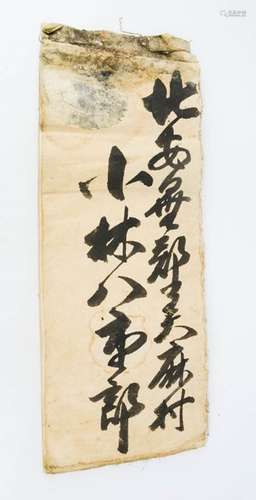 北安曇郡美麻村
小林八重郎